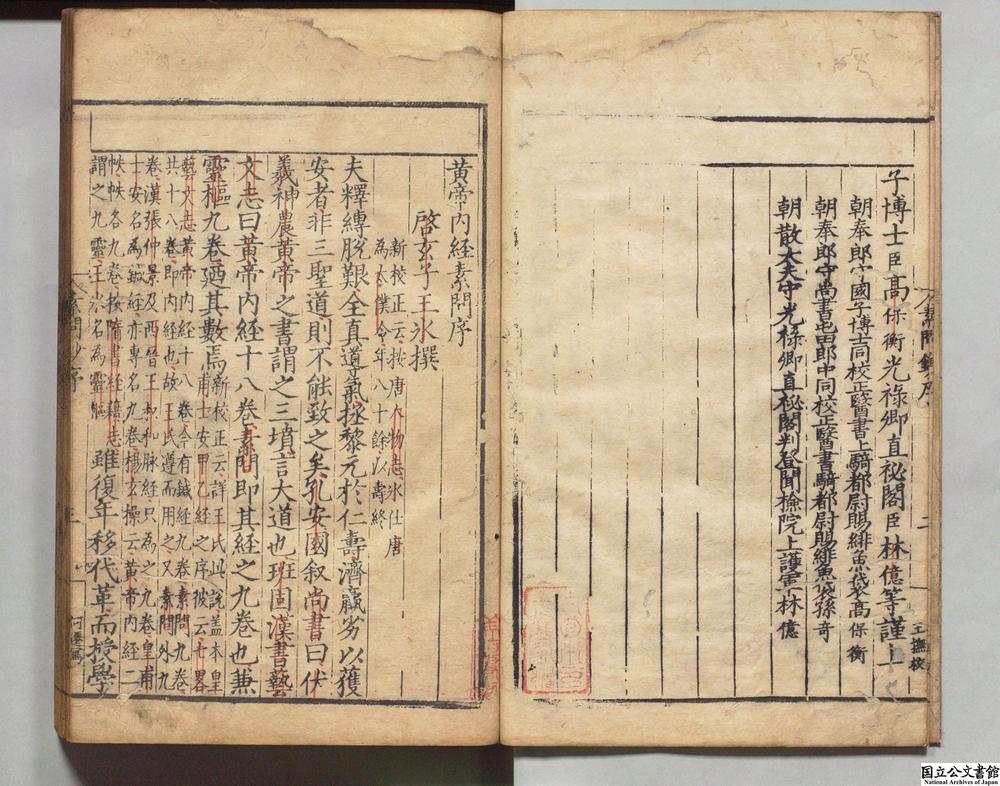 子博士臣高保衡光祿卿直祕閣臣林億等謹上
朝奉郎守國子博士同校正醫書上騎都尉賜緋魚袋高保衡
朝奉郎守尚書屯田郎中同校正醫書騎都尉賜緋魚袋孫奇
朝散大夫守光祿卿直祕閣判登聞檢院上護軍林億
王撫校
黃帝內經素問序
啓玄子王冰撰
新校正云按唐人物志冰仕唐
為太僕令年八十餘以壽終
夫釋縛脫艱全真導氣拯黎元於仁壽濟羸劣以獲
安者非三聖道則不能致之矣孔安國叙尚書曰伏
羲神農黃帝之書謂之三墳言大道也班固漢書藝
文志曰黃帝內經十八卷素問即其經之九卷也兼
靈樞九卷廼其數焉
新校正云詳王氏此說蓋本皇
甫士安甲乙經之序彼云七略
藝文志黃帝內經十八卷今有鍼經九卷素問九卷
共十八卷即內經也故王氏遵而用之又素問外九
卷漢張仲景及西晉王叔和脉經只為之九卷皇甫
士安名為鍼經亦專名九卷楊玄操云黃帝內經二
帙帙各九卷按隋書經籍志
謂之九靈王冰名為靈樞
雖復年移代革而授學
素問鈔序
三
National Archives of Japan
国立公文書館